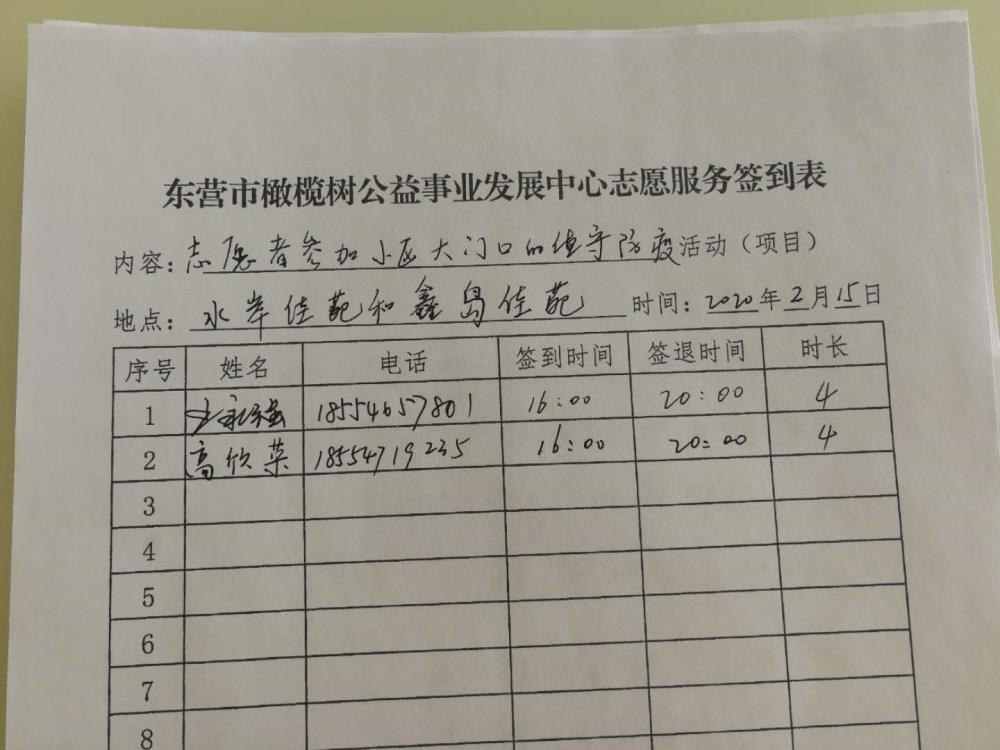 东营市橄榄树公益事业发展中心志愿服务签到表
内容：志愿者参加小区大门口的值守防疫活动（项目）
地点：水岸佳苑和鑫岛佳苑 时间：2020年2月15日
序号 姓名 电话 签到时间 签退时间 时长
1 18554657801 16:00 20:00 4
2 高欣荣 18554719235 16:00 20:00 4
3
4
5
6
7
8